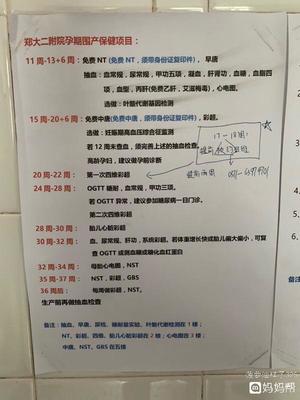 郑大二附院孕期围产保健项目：
11 周-13+6 周：免费 NT（免费 NT，须带身份证复印件），早唐
抽血：血常规，尿常规，甲功五项，凝血，肝肾功，血糖，血脂四
项，血型，丙肝（免费乙肝，艾滋梅毒），心电图。
选做：叶酸代谢基因检测
15 周-20+6 周：免费中唐（免费中唐，须带身份证复印件），彩超。
选做：妊娠期高血压综合征监测
若 12 周未查血，须完善上述的抽血检查
高龄孕妇，建议做孕前诊断
17-18周：
20 周-22 周：第一次四维彩超
24 周-28 周：OGTT 糖耐，血常规，甲功三项。
若 OGTT 异常，建议参加糖尿病一日门诊。
第二次四维彩超
28 周-30 周：胎儿心脏彩超
30 周-32 周：血、尿常规，肝功，系统彩超。若体重增长快或胎儿偏大偏小，可复
查 OGTT 或测血糖或糖化血红蛋白
32 周-34 周：母胎心电图，NST
35 周-37 周：彩超，NST，GBS
36 周后：每周做彩超，NST。
生产前再做抽血检查
备注：抽血、早唐、尿检、糖耐量实验、叶酸代谢检测在 1 楼；
NT、彩超、四维、胎儿心脏彩超在 2 楼；心电图在 3 楼；
中唐、NST、GBS 在五楼
妈妈帮